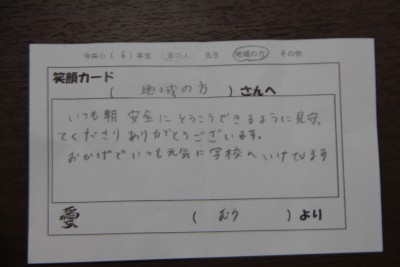 今井小（６）年生 家の人 先生 地域の方 その他
笑顔カード
（ 地域の方 ）さんへ
いつも朝 安全にとうこうできるように見守っ
てくださりありがとうございます。
おかげでいつも元気に学校へいけています
愛 （ むう ）より